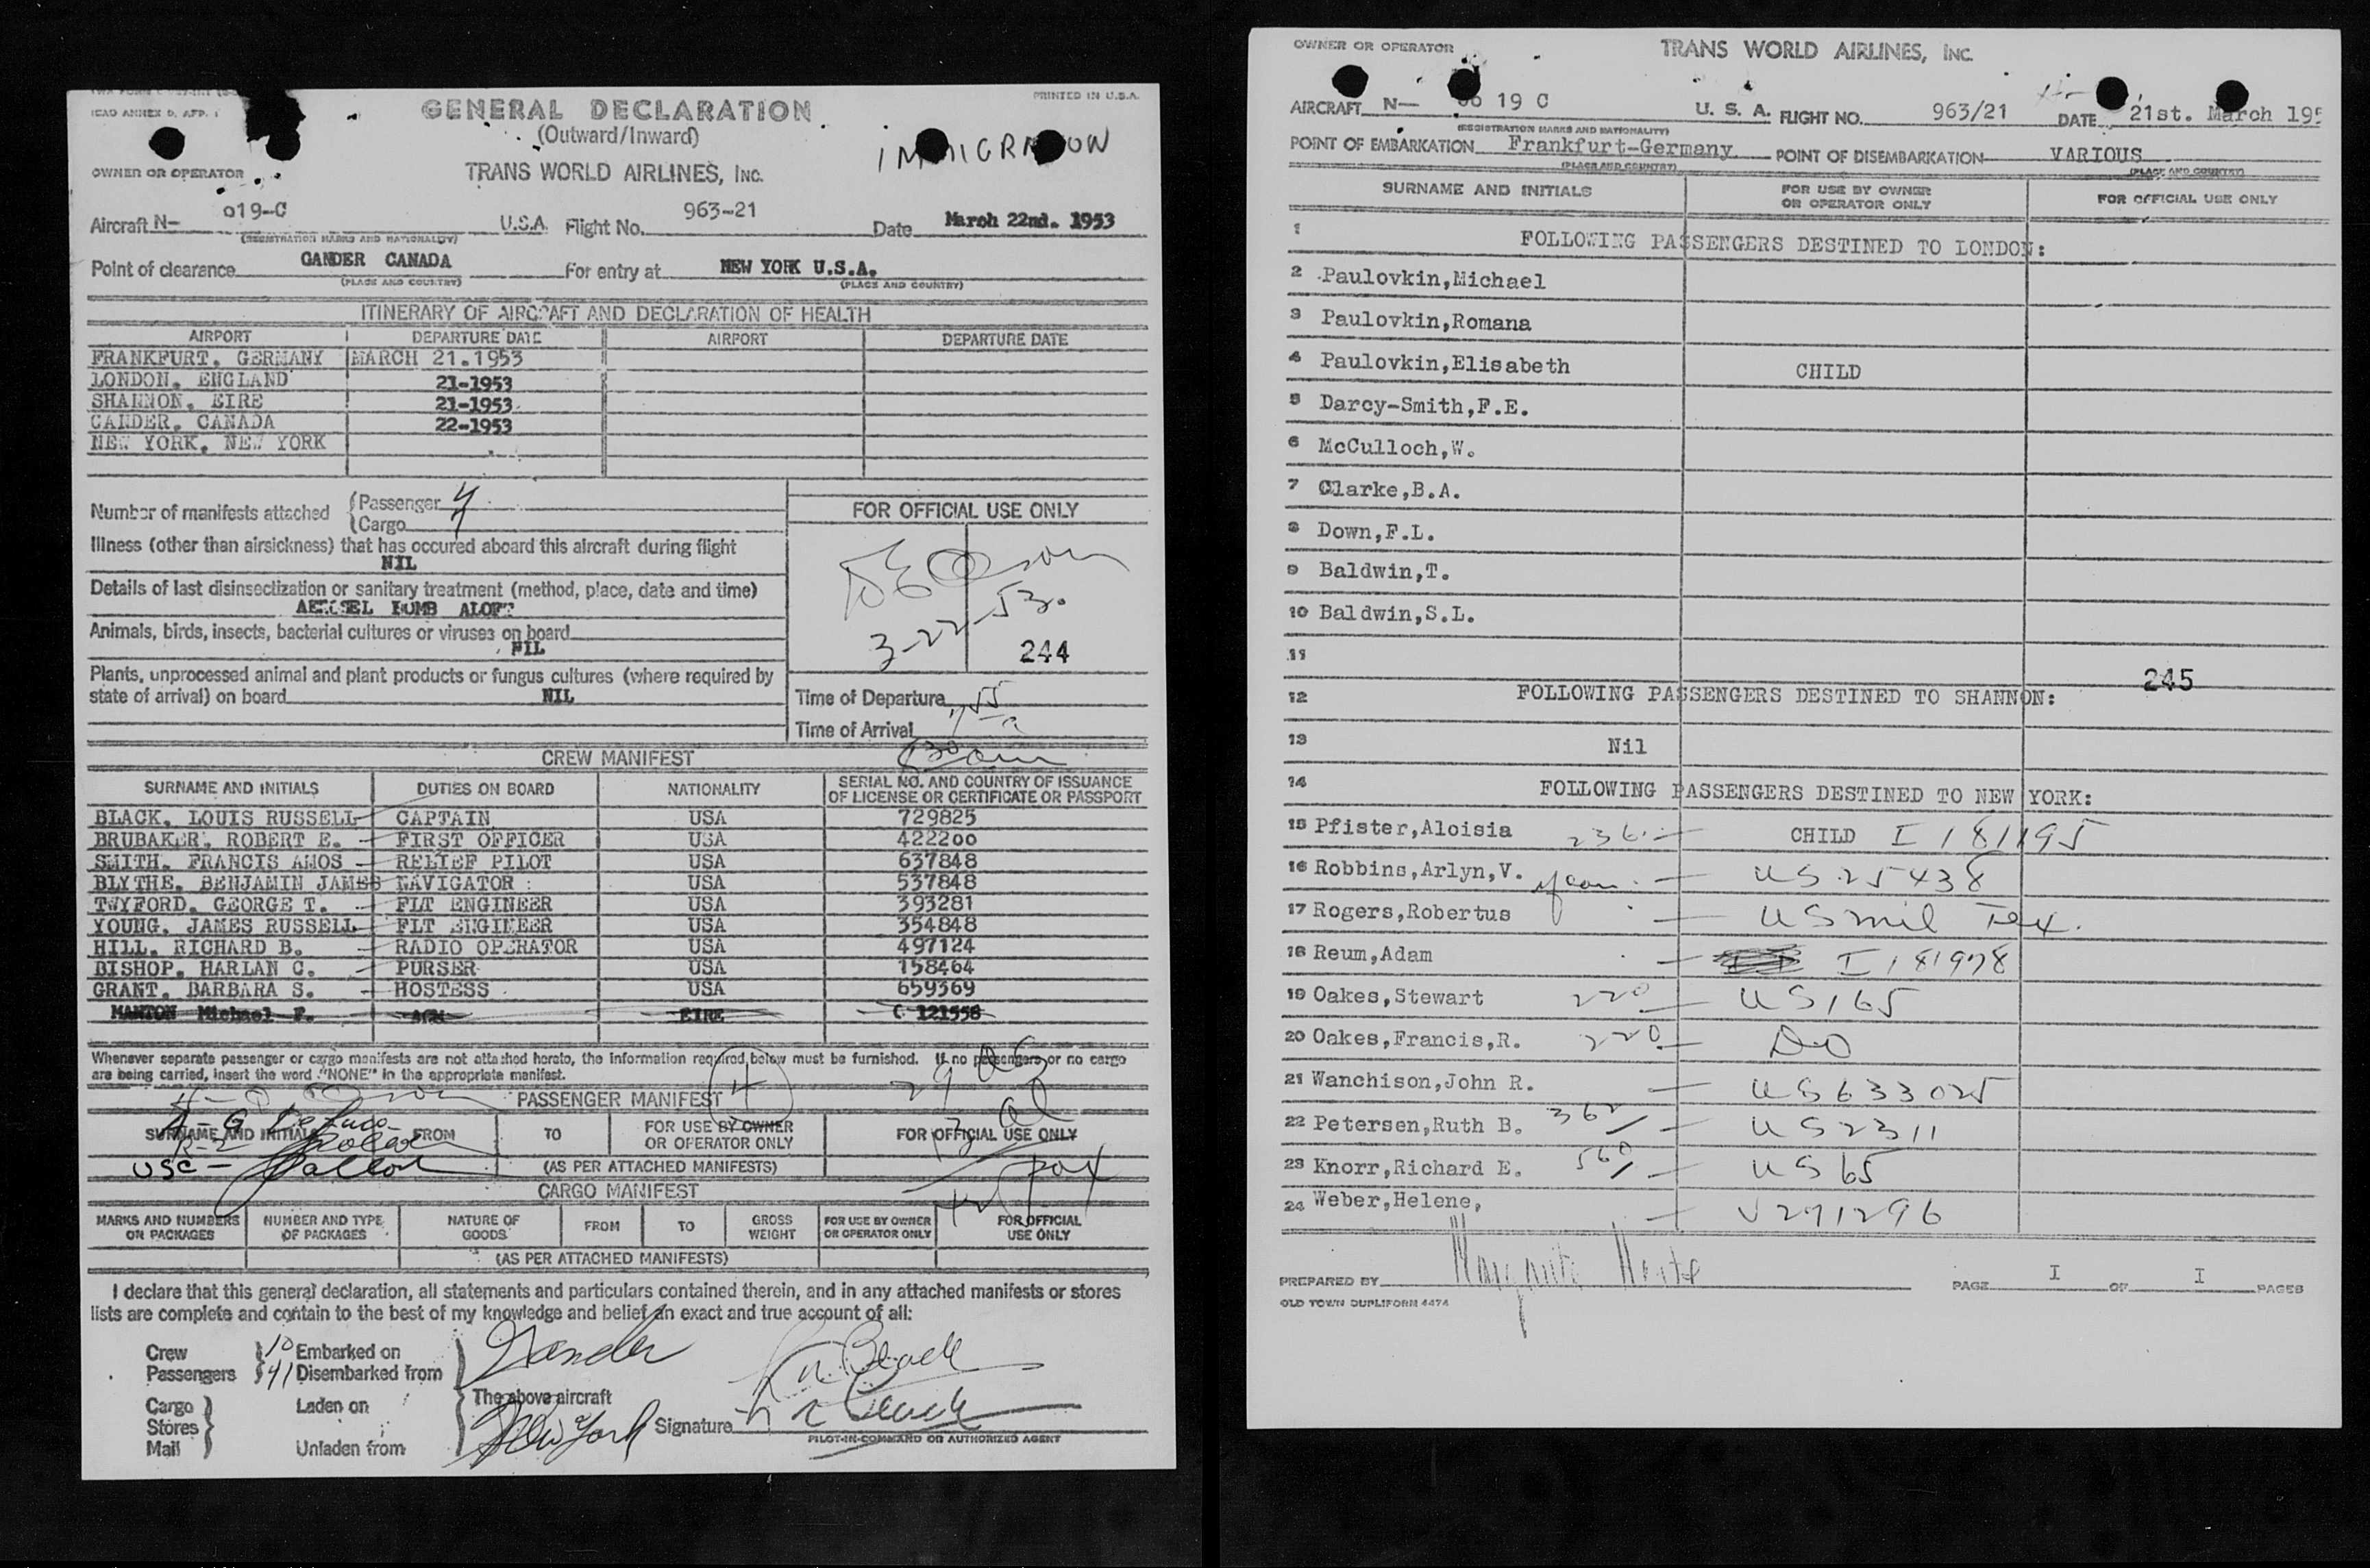 PRINTED IN U.S.A.
GENERAL DECLARATION
(Outward/Inward)
OWNER OR OPERATOR
TRANS WORLD AIRLINES, INC.
Aircraft N- 019-C U.S.A. Flight No. 963-21 Date March 22nd. 1953
(REGISTRATION MARKS AND NATIONALITY)
Point of clearance GANDER CANADA For entry at NEW YORK U.S.A.
(PLACE AND COUNTRY) (PLACE AND COUNTRY)
ITINERARY OF AIRCRAFT AND DECLARATION OF HEALTH
AIRPORT DEPARTURE DATE AIRPORT DEPARTURE DATE
FRANKFURT, GERMANY MARCH 21.1953
LONDON, ENGLAND 21-1953
SHANNON, EIRE 21-1953.
GANDER, CANADA 22-1953
NEW YORK, NEW YORK
Number of manifests attached Passenger 4
Cargo
Illness (other than airsickness) that has occured aboard this aircraft during flight
NIL
Details of last disinsectization or sanitary treatment (method, place, date and time)
BOMB ALOFT
Animals, birds, insects, bacterial cultures or viruses on board
NIL
Plants, unprocessed animal and plant products or fungus cultures (where required by
state of arrival) on board NIL
FOR OFFICIAL USE ONLY
3-22-53.
244
Time of Departure
Time of Arrival
CREW MANIFEST
SURNAME AND INITIALS DUTIES ON BOARD NATIONALITY SERIAL NO. AND COUNTRY OF ISSUANCE
OF LICENSE OR CERTIFICATE OR PASSPORT
BLACK, LOUIS RUSSELL CAPTAIN USA 729825
BRUBAKER, ROBERT E. FIRST OFFICER USA 422200
SMITH, FRANCIS AMOS RELIEF PILOT USA 637848
BLYTHE, BENJAMIN JAMES NAVIGATOR USA 537848
TWYFORD, GEORGE T. FLT ENGINEER USA 393281
YOUNG, JAMES RUSSELL FLT ENGINEER USA 354848
HILL, RICHARD B. RADIO OPERATOR USA 497124
BISHOP, HARLAN C. PURSER USA 158464
GRANT, BARBARA S. HOSTESS USA 659369
MANTON Michael F. EIRE C 121556
Whenever separate passenger or cargo manifests are not attached hereto, the information required below must be furnished. If no passengers or no cargo
are being carried, insert the word "NONE" in the appropriate manifest.
PASSENGER MANIFEST
SURNAME AND INITIALS FROM TO FOR USE BY OWNER
OR OPERATOR ONLY FOR OFFICIAL USE ONLY
USC -
(AS PER ATTACHED MANIFESTS)
CARGO MANIFEST
MARKS AND NUMBERS
ON PACKAGES NUMBER AND TYPE
OF PACKAGES NATURE OF
GOODS FROM TO GROSS
WEIGHT FOR USE BY OWNER
OR OPERATOR ONLY FOR OFFICIAL
USE ONLY
(AS PER ATTACHED MANIFESTS)
I declare that this general declaration, all statements and particulars contained therein, and in any attached manifests or stores
lists are complete and contain to the best of my knowledge and belief an exact and true account of all:
Crew 10 Embarked on Gander
Passengers 41 Disembarked from
The above aircraft
Cargo Laden on
Stores New York Signature
Mail Unladen from
PILOT-IN-COMMAND OR AUTHORIZED AGENT
OWNER OR OPERATOR TRANS WORLD AIRLINES, INC.
AIRCRAFT N- 19 C U. S. A. FLIGHT NO. 963/21 DATE 21st. March 195
(REGISTRATION MARKS AND NATIONALITY)
POINT OF EMBARKATION Frankfurt-Germany POINT OF DISEMBARKATION VARIOUS
(PLACE AND COUNTRY) (PLACE AND COUNTRY)
SURNAME AND INITIALS FOR USE BY OWNER
OR OPERATOR ONLY FOR OFFICIAL USE ONLY
1 FOLLOWING PASSENGERS DESTINED TO LONDON:
2 Paulovkin,Michael
3 Paulovkin,Romana
4 Paulovkin,Elisabeth CHILD
5 Darcy-Smith,F.E.
6 McCulloch,W.
7 Clarke,B.A.
8 Down,F.L.
9 Baldwin,T.
10 Baldwin,S.L.
11
245
12 FOLLOWING PASSENGERS DESTINED TO SHANNON:
13 Nil
14 FOLLOWING PASSENGERS DESTINED TO NEW YORK:
15 Pfister,Aloisia 236.- CHILD I 181195
16 Robbins,Arlyn,V. US 25438
17 Rogers,Robertus US mil
18 Reum,Adam I 181978
19 Oakes,Stewart 220 US 165
20 Oakes,Francis,R. 220 DO
21 Wanchison,John R. US 633025
22 Petersen,Ruth B. 362/ US 2311
23 Knorr,Richard E. 560/ US 65
24 Weber,Helene, V 271296
PREPARED BY PAGE I OF I PAGES
OLD TOWN DUPLIFORM 4474